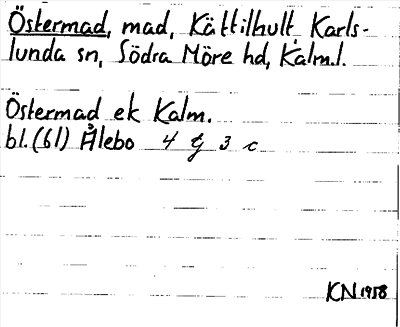 Östermad, mad, Kättilhult, Karls-
lunda sn, Södra Möre hd, Kalm.l.
Östermad ek Kalm.
bl.(61) Ålebo 4 G 3 c
KN 1958